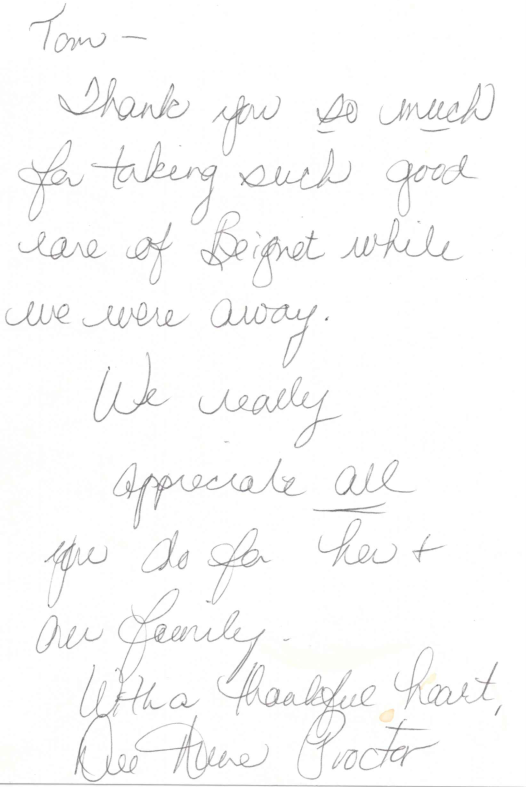 Tom —
Thank you so much
for taking such good
care of Beignet while
we were away.
We really
appreciate all
you do for her +
our family.
With a thankful heart,
Dee Anne Proctor